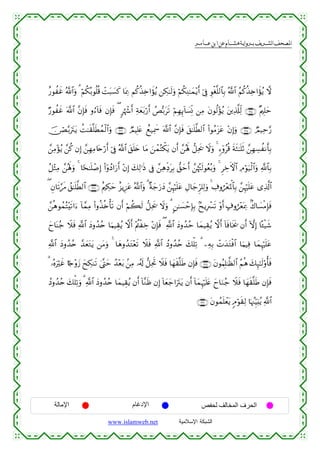 المصحف الشريف برواية هشام عن ابن عامر
لَّا يُؤَاخِذُكُمُ ٱللَّهُ بِٱللَّغْوِ فِىٓ أَيْمَٰنِكُمْ وَلَٰكِن يُؤَاخِذُكُم بِمَا كَسَبَتْ قُلُوبُكُمْ ۗ وَٱللَّهُ غَفُورٌ
حَلِيمٌ لِّلَّذِينَ يُؤْلُونَ مِن نِّسَآئِهِمْ تَرَبُّصُ أَرْبَعَةِ أَشْهُرٍ ۖ فَإِن فَآءُو فَإِنَّ ٱللَّهَ غَفُورٌ
رَّحِيمٌ وَإِنْ عَزَمُوا۟ ٱلطَّلَٰقَ فَإِنَّ ٱللَّهَ سَمِيعٌ عَلِيمٌ وَٱلْمُطَلَّقَٰتُ يَتَرَبَّصْنَ
بِأَنفُسِهِنَّ ثَلَٰثَةَ قُرُوٓءٍ ۚ وَلَا يَحِلُّ لَهُنَّ أَن يَكْتُمْنَ مَا خَلَقَ ٱللَّهُ فِىٓ أَرْحَامِهِنَّ إِن كُنَّ يُؤْمِنَّ
بِٱللَّهِ وَٱلْيَوْمِ ٱلْءَاخِرِ ۚ وَبُعُولَتُهُنَّ أَحَقُّ بِرَدِّهِنَّ فِى ذَٰلِكَ إِنْ أَرَادُوٓا۟ إِصْلَٰحًا ۚ وَلَهُنَّ مِثْلُ
ٱلَّذِى عَلَيْهِنَّ بِٱلْمَعْرُوفِ ۚ وَلِلرِّجَالِ عَلَيْهِنَّ دَرَجَةٌ ۗ وَٱللَّهُ عَزِيزٌ حَكِيمٌ ٱلطَّلَٰقُ مَرَّتَانِ ۖ
فَإِمْسَاكٌۢ بِمَعْرُوفٍ أَوْ تَسْرِيحٌۢ بِإِحْسَٰنٍ ۗ وَلَا يَحِلُّ لَكُمْ أَن تَأْخُذُوا۟ مِمَّآ ءَاتَيْتُمُوهُنَّ
شَيْـًٔا إِلَّآ أَن يَخَافَآ أَلَّا يُقِيمَا حُدُودَ ٱللَّهِ ۖ فَإِنْ خِفْتُمْ أَلَّا يُقِيمَا حُدُودَ ٱللَّهِ فَلَا جُنَاحَ
عَلَيْهِمَا فِيمَا ٱفْتَدَتْ بِهِۦ ۗ تِلْكَ حُدُودُ ٱللَّهِ فَلَا تَعْتَدُوهَا ۚ وَمَن يَتَعَدَّ حُدُودَ ٱللَّهِ
فَأُو۟لَٰٓئِكَ هُمُ ٱلظَّٰلِمُونَ فَإِن طَلَّقَهَا فَلَا تَحِلُّ لَهُۥ مِنۢ بَعْدُ حَتَّىٰ تَنكِحَ زَوْجًا غَيْرَهُۥ ۗ
فَإِن طَلَّقَهَا فَلَا جُنَاحَ عَلَيْهِمَآ أَن يَتَرَاجَعَآ إِن ظَنَّآ أَن يُقِيمَا حُدُودَ ٱللَّهِ ۗ وَتِلْكَ حُدُودُ
ٱللَّهِ يُبَيِّنُهَا لِقَوْمٍ يَعْلَمُونَ
الحرف المخالف لحفص الإدغام الإمالة
الشبكة الإسلامية www.islamweb.net